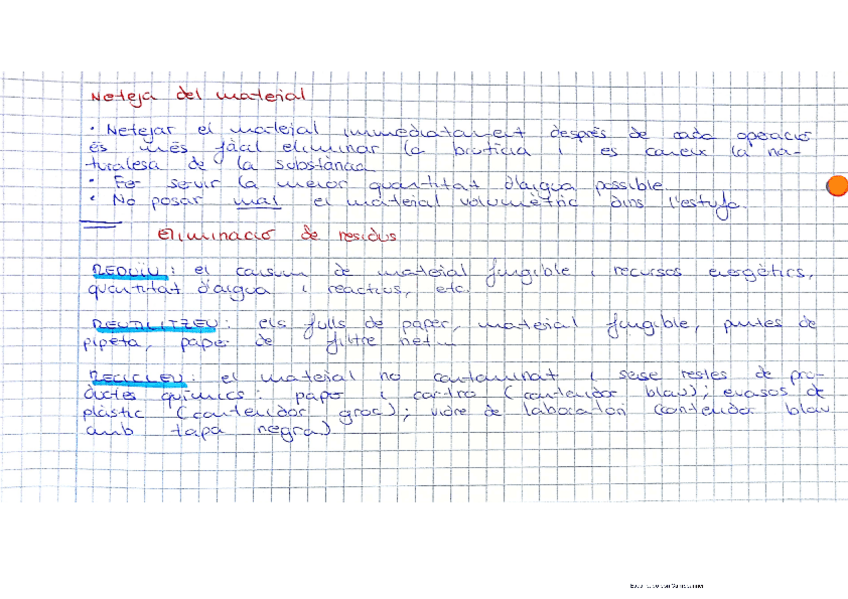 Neteja del material
· Netejar el material immediatament després de cada operació
és més fàcil eliminar la brutícia i es coneix la na-
turalesa de la substància
· Fer servir la menor quantitat d'aigua possible.
· No posar mal el material volumètric dins l'estufa.
Eliminació de residus
REDUÏU: el consum de material fungible i recursos energètics,
quantitat d'aigua i reactius, etc.
REUTILITZEU: els fulls de paper, material fungible, puntes de
pipeta, paper de filtre net...
RECICLEU: el material no contaminat i sense restes de pro-
ductes químics: paper i cartró (contenidor blau); envasos de
plàstic (contenidor groc); vidre de laboratori (contenidor blau
amb tapa negra)